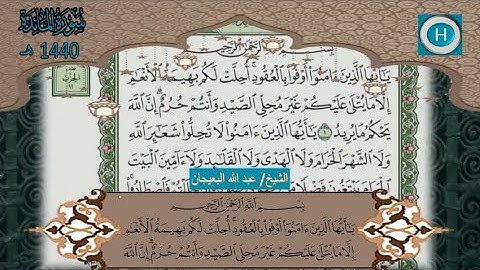 سُورَةُ المَائِدَة
1440 هـ
H
بِسْمِ اللَّهِ الرَّحْمَٰنِ الرَّحِيمِ
يَٰٓأَيُّهَا ٱلَّذِينَ ءَامَنُوٓا۟ أَوْفُوا۟ بِٱلْعُقُودِ ۚ أُحِلَّتْ لَكُم بَهِيمَةُ ٱلْأَنْعَٰمِ
إِلَّا مَا يُتْلَىٰ عَلَيْكُمْ غَيْرَ مُحِلِّى ٱلصَّيْدِ وَأَنتُمْ حُرُمٌ ۗ إِنَّ ٱللَّهَ
يَحْكُمُ مَا يُرِيدُ ١ يَٰٓأَيُّهَا ٱلَّذِينَ ءَامَنُوا۟ لَا تُحِلُّوا۟ شَعَٰٓئِرَ ٱللَّهِ
وَلَا ٱلشَّهْرَ ٱلْحَرَامَ وَلَا ٱلْهَدْىَ وَلَا ٱلْقَلَٰٓئِدَ وَلَآ ءَآمِّينَ ٱلْبَيْتَ
الشيخ/ عبد الله البعيجان
بِسْمِ اللَّهِ الرَّحْمَٰنِ الرَّحِيمِ
يَٰٓأَيُّهَا ٱلَّذِينَ ءَامَنُوٓا۟ أَوْفُوا۟ بِٱلْعُقُودِ ۚ أُحِلَّتْ لَكُم بَهِيمَةُ ٱلْأَنْعَٰمِ
إِلَّا مَا يُتْلَىٰ عَلَيْكُمْ غَيْرَ مُحِلِّى ٱلصَّيْدِ وَأَنتُمْ حُرُمٌ ۗ إِنَّ ٱللَّهَ